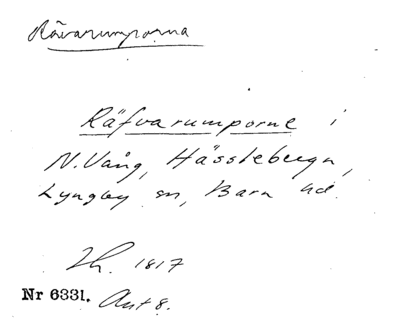 Rävarumporna
Räfvarumporne i
N. Vång, Hässleberga,
Lyngby sn, Bara hd.
Lh. 1817
Nr 6331. Ant 8.